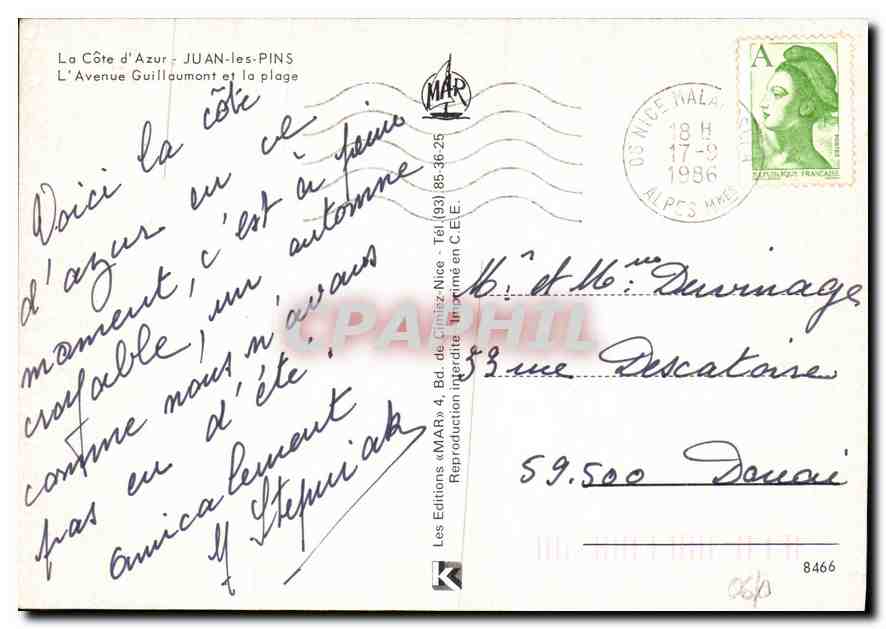 La Côte d'Azur - JUAN-les-PINS
L'Avenue Guillaumont et la plage
MAR
Voici la côte
d'azur en ce
moment, c'est à peine
croyable, un automne
comme nous n'avons
pas eu d'été.
amicalement
M Stepniak
Les Editions «MAR» 4, Bd. de Cimiez-Nice - Tél. (93) 85-36-25
Reproduction interdite - Imprimé en C.E.E.
K
06 NICE
18 H
17-9
1986
ALPES MMES
A
POSTES
REPUBLIQUE FRANÇAISE
Mr et Mme Duvinage
53 rue Descatoire
59.500 Douai
8466
CPAPHIL